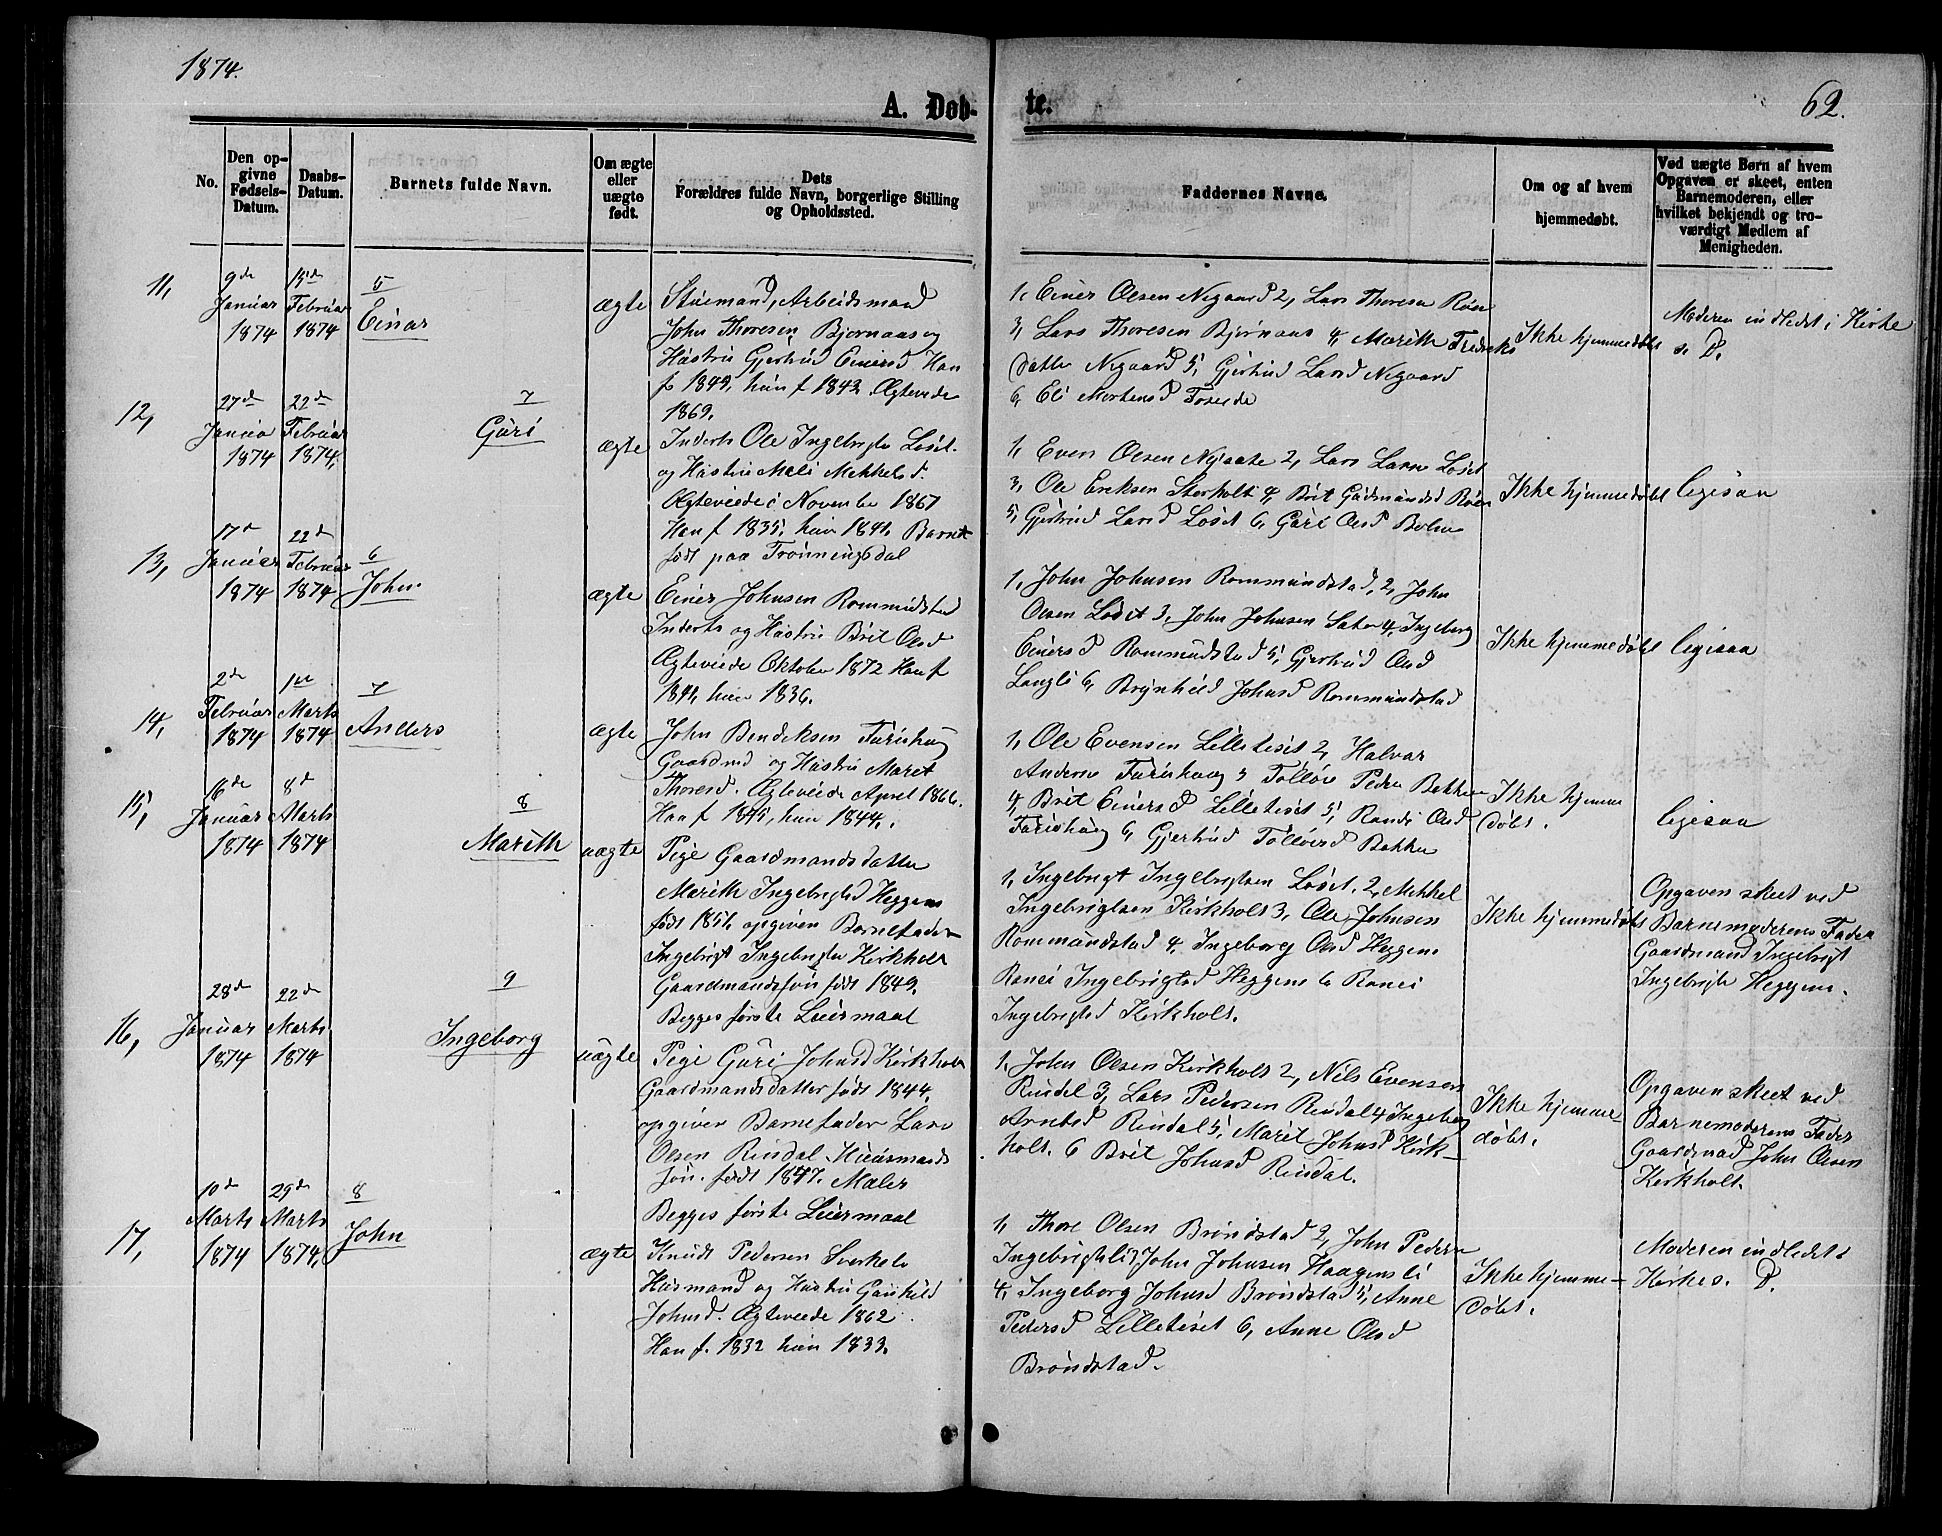 1874.
A. Døb-
te.
62.
No.
Den op-
givne
Fødsels-
Datum.
Daabs-
Datum.
Barnets fulde Navn.
Om ægte
eller
uægte
født.
Dets
Forældres fulde Navn, borgerlige Stilling
og Opholdssted.
Faddernes Navne.
Om og af hvem
hjemmedøbt.
Ved uægte Børn af hvem
Opgaven er skeet, enten
Barnemoderen, eller
hvilket bekjendt og tro-
værdigt Medlem af
Menigheden.
11,
9de
Januar
1874
15de
Februar
1874
5
Einar
ægte
Arbeidsmand
John Thoresen Bjørnaas og
Hustru Gjertrud Einersd Han
f 1849, hun f 1843 Ægteviede
1869.
1, Einer Olsen Negaard 2, Lars Thoresen Røen
3, Lars Thoresen Bjørnaas 4, Marith Fredriks
datter Negaard 5, Gjertrud Larsd Negaard
6, Eli Mortensd
Ikke hjemmedøbt
Moderen indledet i Kirke
s. D.
12,
27de
1874
22de
Februar
1874,
7
Guri
ægte
Inderts Ole Ingebrigts Løset
og Hustru Mali Mekkelsd.
Ægteviede i November 1867
Han f 1835, hun 1841, Barnet
født paa Trønningsdal
1, Even Olsen 2, Lars Larsen Løset
3, Ole Eriksen Storholt 4, Brit Gudmundsd Røen
5, Gjertrud Larsd Løset 6, Guri Olsd Bolme
Ikke hjemmedøbt
ligesaa
13,
17de
Januar
1874
22de
Februar
1874
6
John
ægte
Einer Johnsen Rommundstad
Inderts og Hustru Brit Olsd
Ægteviede Oktober 1872 Han f
1841, hun 1836.
1, John Johnsen Rommundstad, 2, John
Olsen Løset 3, John Johnsen Sæter 4, Ingeborg
Einersd Rommundstad 5, Gjertrud Olsd
Langli 6, Brynhild Johnsd Rommundstad
Ikke hjemmedøbt
ligesaa
14,
2de
Februar
1874
1ste
Marts
1874
7
Anders
ægte
John Bendiksen Furuhaug
Gaardmd og Hustru Maret
Thoresd. Ægteviede April 1866.
Han f 1841, hun 1844.
1, Ole Evensen Lilleløset 2, Halvar
Andersen Furuhaug 3 Tølløv Peders Bakken
4, Brit Einersd Lilleløset 5, Randi Olsd
Furuhaug 6, Gjertrud Tølløvsd Bakken
Ikke hjemme
døbt.
ligesaa
15,
16de
Januar
1874
8de
Marts
1874
8
Marith
uægte
Pige Gaardmandsdatter
Marith Ingebrigtsd Heggem
født 1851, opgiven Barnefader
Ingebrigt Ingebrigts Kirkholt
Gaardmandssøn født 1849.
Begges første Leiermaal
1, Ingebrigt Ingebrigtsen Løset, 2, Mekkel
Ingebrigtsen Kirkholt 3, Ole Johnsen
Rommundstad 4, Ingeborg Olsd Heggem
Ranei Ingebrigtsd Heggem 6 Ranei
Ingebrigtsd Kirkholt.
Ikke hjemmedøbt
Opgaven skeet ved
Barnemoderens Fader
Gaardmand Ingebrigt
Ingebrigts Heggem.
16,
28de
Januar
1874
22de
Marts
1874
9
Ingeborg
uægte
Pige Guri Johnsd Kirkholt
Gaardmandsdatter født 1844,
opgiven Barnefader Lars
Olsen Rindal Huusmands
søn. født 1847. Maler
Begges første Leiermaal
1, John Olsen Kirkholt 2, Nils Evensen
Rindal 3, Lars Pedersen Rindal 4 Ingeborg
Arntsd Rindal 5, Marit Johnsd Kirk-
holt. 6 Brit Johnsd Rindal.
Ikke hjemme-
døbt.
Opgaven skeet ved
Barnemoderens Fader
Gaardmd John Olsen
Kirkholt.
17,
10de
Marts
1874
29de
Marts
1874,
8
John
ægte
Knudt Pedersen
Husmand og Hustru Gunhild
Johnsd. Ægteviede 1862
Han f. 1832 hun 1833.
1, Thore Olsen Brøndstad 2, John Peders
Ingebrigtsli 3, John Johnsen Haagensli
4, Ingeborg Johnsd Brøndstad 5, Anne
Pedersd Lilleløset 6, Anne Olsd
Brøndstad.
Ikke hjemme-
døbt.
Moderen indledet i
Kirke s. D.